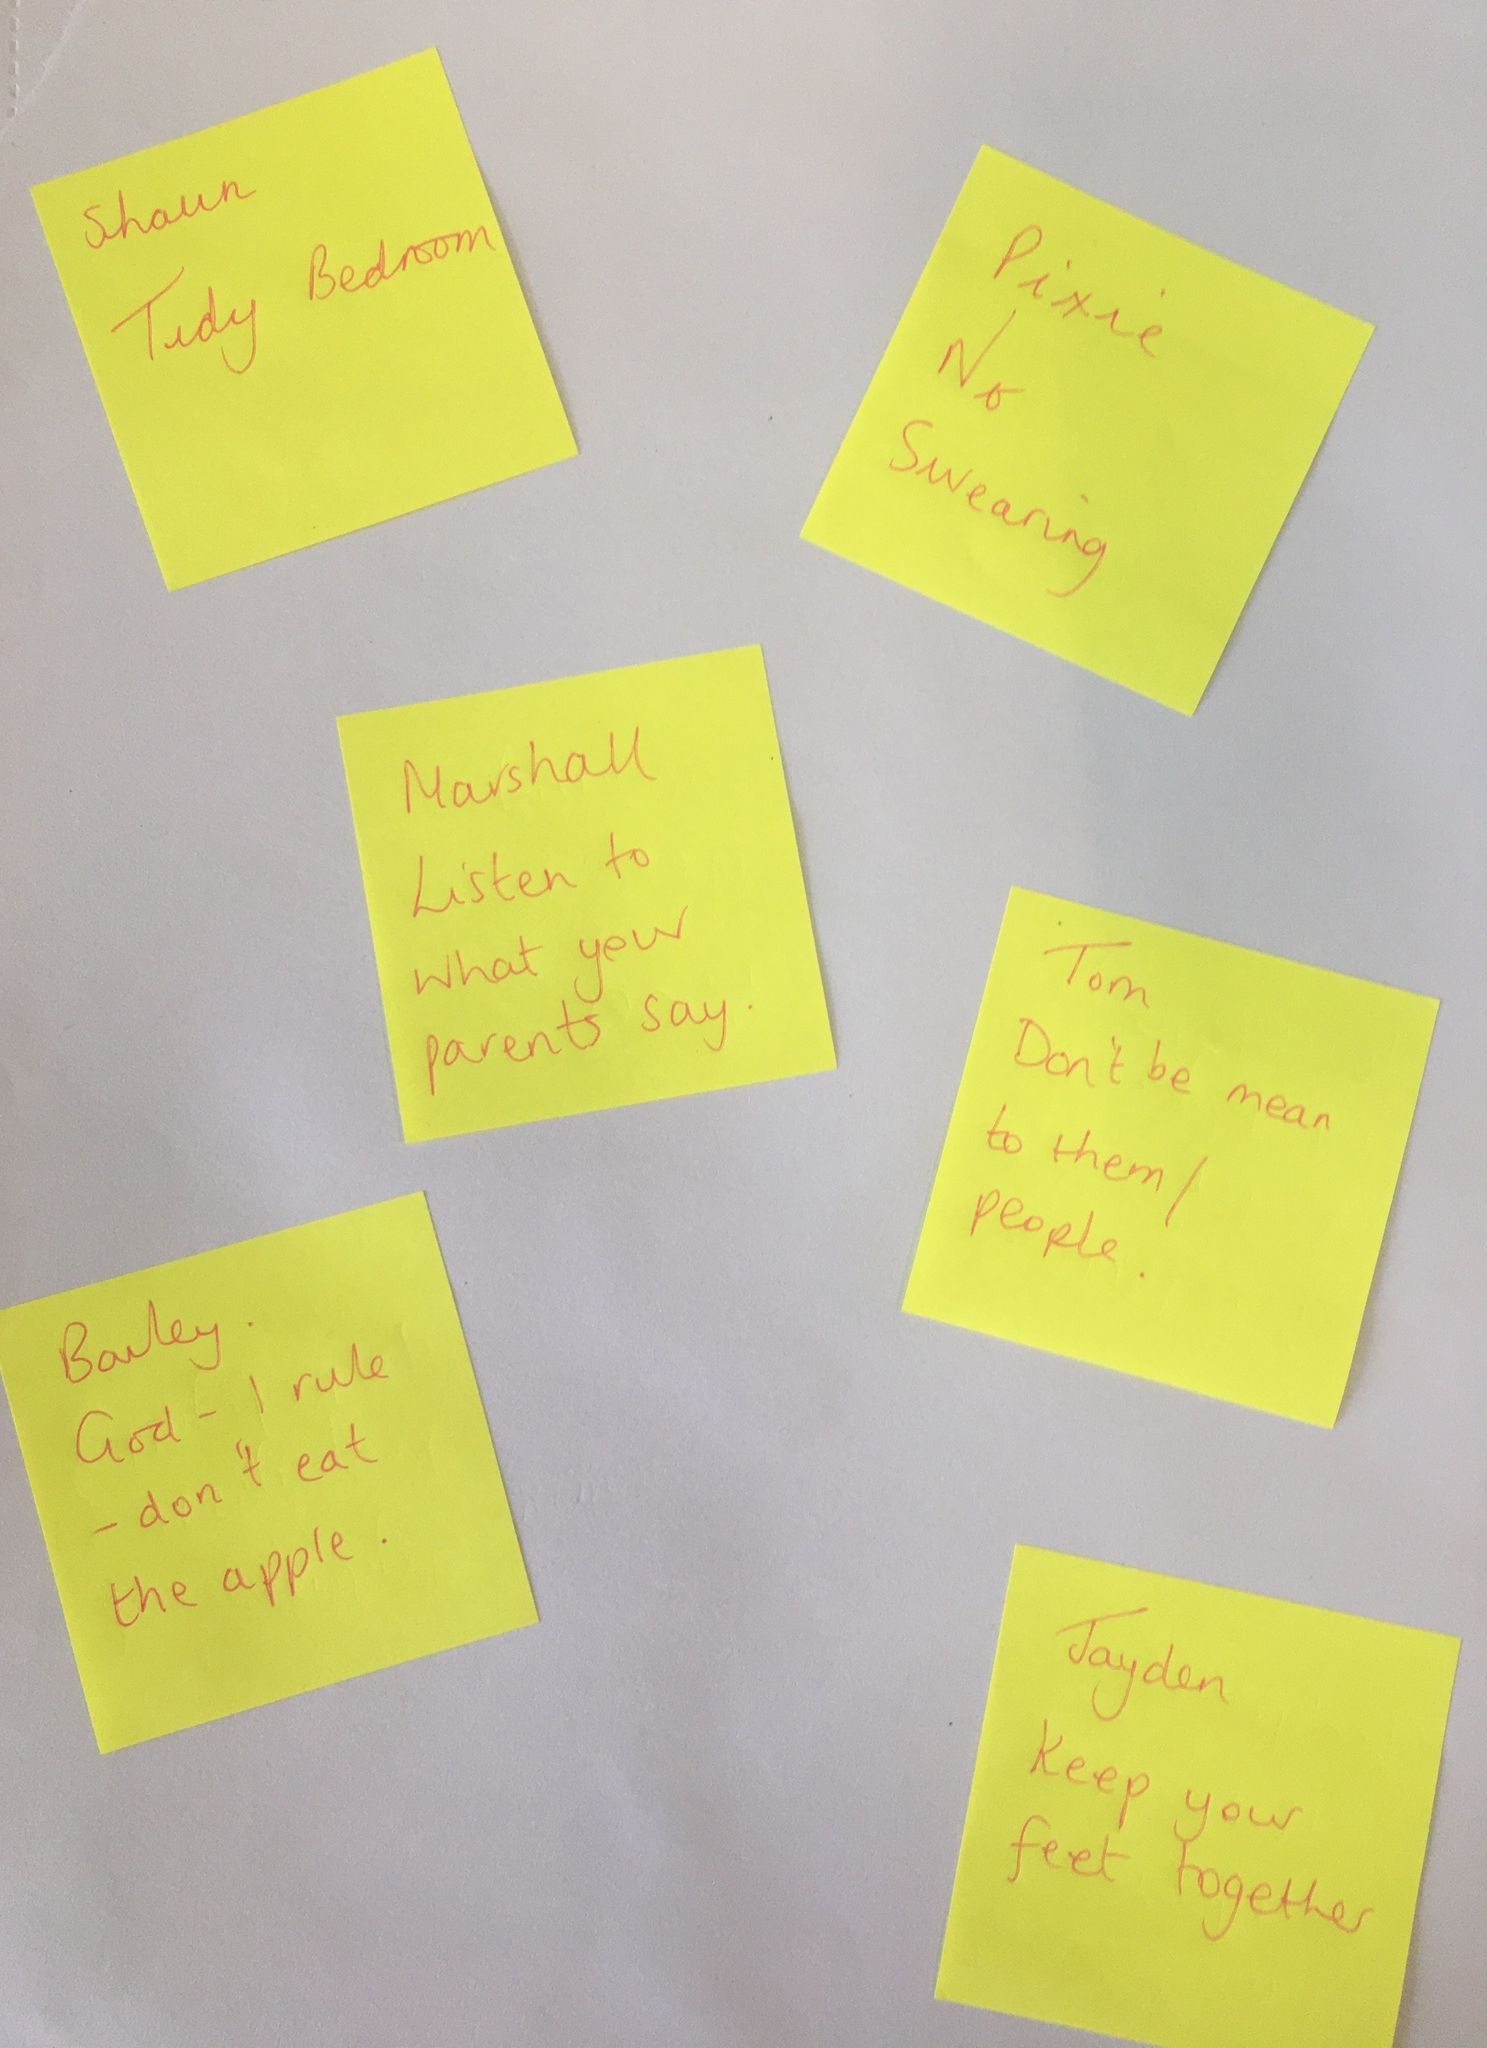 Shaun
Tidy Bedroom
Pixie
No
Swearing
Marshall
Listen to
what your
parents say.
Tom
Don't be mean
to them/
people.
Bailey.
God - I rule
- don't eat
the apple.
Jayden
Keep your
feet together